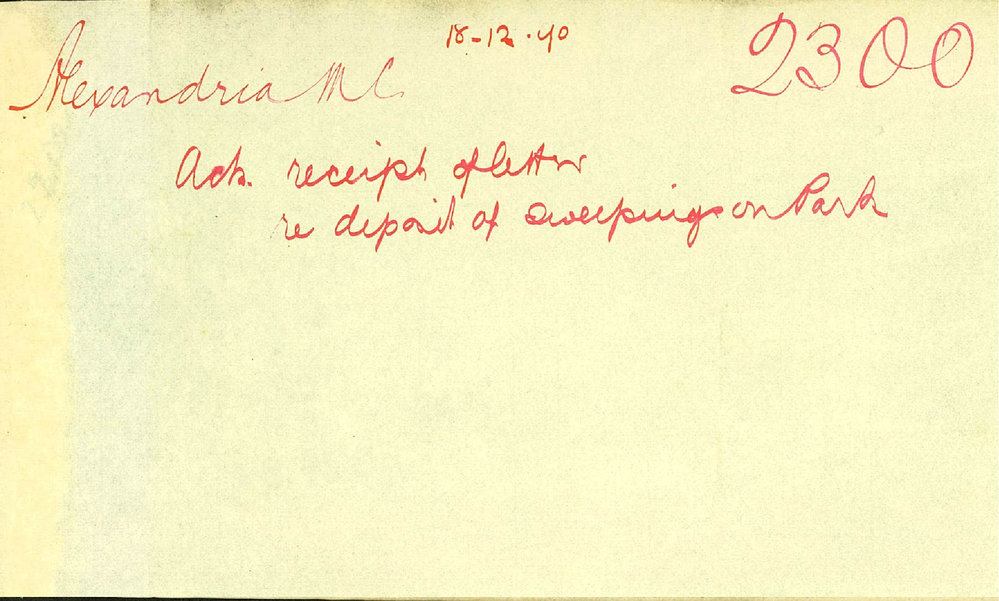 18-12.40
2300
Alexandria M C.
Ack. receipt of letter
re deposit of sweepings on Park